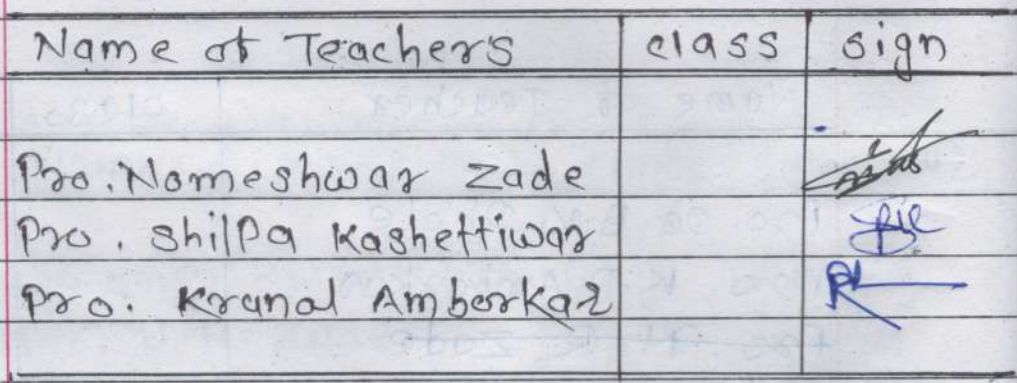 Name of Teachers class sign
Pro. Nomeshwar Zade
Pro. Shilpa Kashettiwar
Pro. Kranal Amborkar